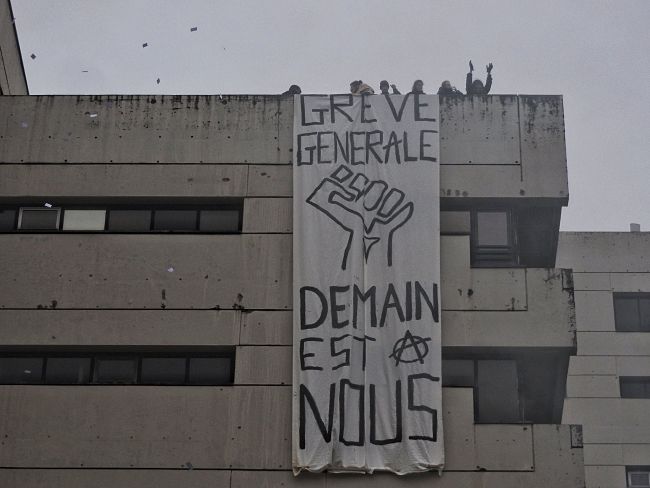 GREVE
GENERALE
DEMAIN
EST A
NOUS